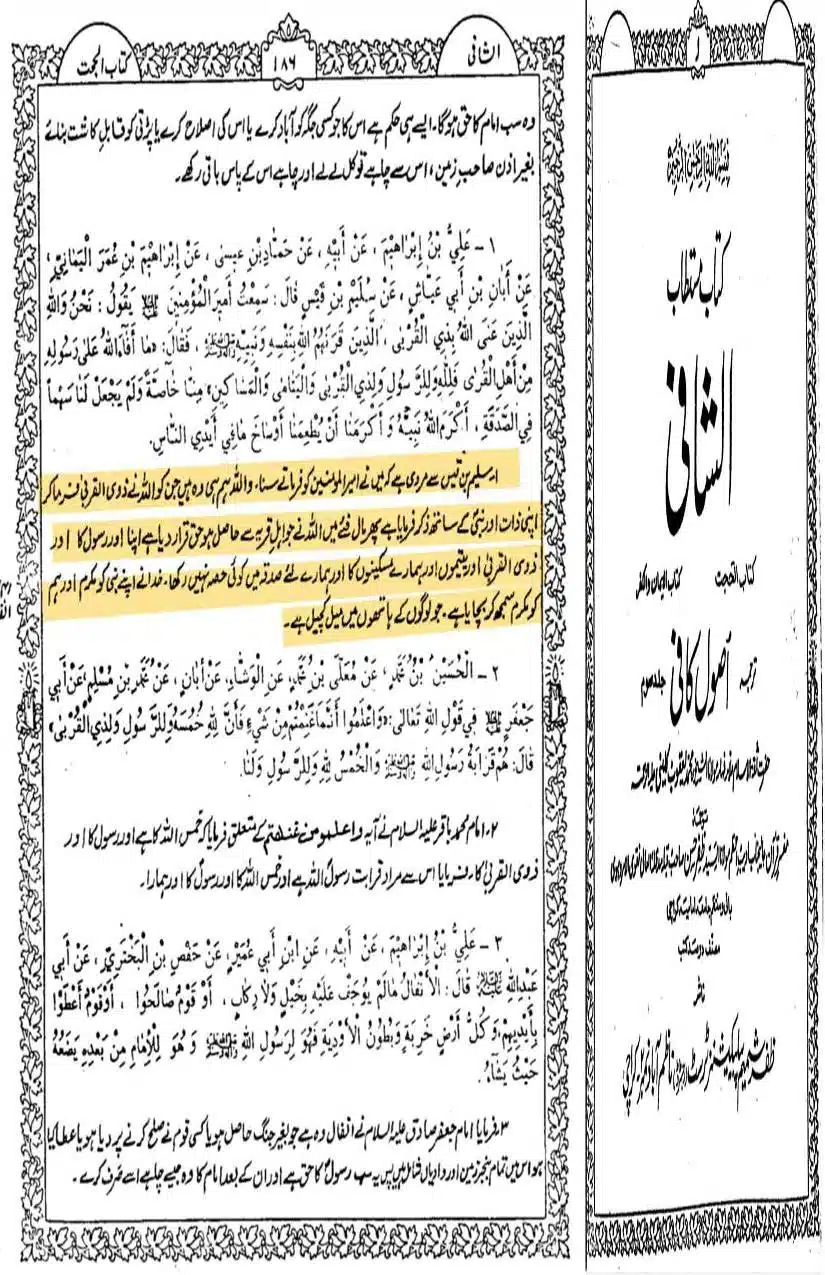 الشافی
۱۸۶
کتاب الحجت
وہ سب امام کا حق ہوگا۔ ایسے ہی حکم ہے اس کا جو کسی جگہ کو آباد کرے یا اس کی اصلاح کرے یا پڑتی کو قابل کاشت بنائے
بغیر اذن صاحب زمین، اس سے چاہے تو کل لے لے اور چاہے اس کے پاس باقی رکھے۔
١ ـ عَلِيُّ بْنُ إِبْرَاهِيْمَ ، عَنْ أَبِيْهِ ، عَنْ حَمَّادِ بْنِ عِيسى ، عَنْ إِبْرَاهِيْمَ بْنِ عُمَرَ الْيَمَانِيِّ ،
عَنْ أَبَانِ بْنِ أَبِي عَيَّاشٍ ، عَنْ سُلَيْمِ بْنِ قَيْسٍ قَالَ : سَمِعْتُ أَمِيرَ الْمُؤْمِنِينَ عليه السلام يَقُولُ : نَحْنُ وَاللّٰهِ
الَّذِينَ عَنَى اللّٰهُ بِذِي الْقُرْبى ، الَّذِينَ قَرَنَهُمُ اللّٰهُ بِنَفْسِهِ وَنَبِيِّهِ ﷺ ، فَقَالَ: «مَا أَفَاءَ اللّٰهُ عَلٰى رَسُولِهِ
مِنْ أَهْلِ الْقُرٰى فَلِلّٰهِ وَلِلرَّسُولِ وَلِذِي الْقُرْبٰى وَالْيَتَامٰى وَالْمَسَاكِينِ» مِنَّا خَاصَّةً وَلَمْ يَجْعَلْ لَنَا سَهْماً
فِي الصَّدَقَةِ ، أَكْرَمَ اللّٰهُ نَبِيَّهُ وَ أَكْرَمَنَا أَنْ يُطْعِمَنَا أَوْسَاخَ مَا فِي أَيْدِي النَّاسِ.
۱۔ سلیم بن قیس سے مروی ہے کہ میں نے امیر المومنین کو فرماتے سنا۔ واللہ ہم ہی وہ ہیں جن کو اللہ نے ذوی القربیٰ فرما کر
اپنی ذات اور نبیؐ کے ساتھ ذکر فرمایا ہے پھر مال فئے میں اللہ نے جو اہل قریہ سے حاصل ہو حق قرار دیا ہے اپنا اور رسول کا اور
ذوی القربیٰ اور یتیموں اور ہمارے مسکینوں کا اور ہمارے لئے صدقہ میں کوئی حصہ نہیں رکھا۔ خدا نے اپنے نبی کو مکرم اور ہم
کو مکرم سمجھ کر بچایا ہے۔ جو لوگوں کے ہاتھوں میں میل کچیل ہے۔
٢ ـ الْحُسَيْنُ بْنُ مُحَمَّدٍ ، عَنْ مُعَلَّى بْنِ مُحَمَّدٍ، عَنِ الْوَشَّاءِ، عَنْ أَبَانٍ ، عَنْ مُحَمَّدِ بْنِ مُسْلِمٍ ، عَنْ أَبِي
جَعْفَرٍ عليه السلام فِي قَوْلِ اللّٰهِ تَعَالٰى: «وَاعْلَمُوا أَنَّمَا غَنِمْتُمْ مِنْ شَيْءٍ فَأَنَّ لِلّٰهِ خُمُسَهُ وَلِلرَّسُولِ وَلِذِي الْقُرْبٰى»
قَالَ : هُمْ قَرَابَةُ رَسُولِ اللّٰهِ ﷺ وَالْخُمْسُ لِلّٰهِ وَلِلرَّسُولِ وَلَنَا.
۲۔ امام محمد باقر علیہ السلام نے آیہ واعلموا انما غنمتم کے متعلق فرمایا کہ خمس اللہ کا ہے اور رسول کا اور
ذوی القربیٰ کا۔ فرمایا اس سے مراد قرابت رسولؐ اللہ ہے اور خمس اللہ کا اور رسولؐ کا اور ہمارا۔
٣ ـ عَلِيُّ بْنُ إِبْرَاهِيْمَ ، عَنْ أَبِيهِ ، عَنِ ابْنِ أَبِي عُمَيْرٍ، عَنْ حَفْصِ بْنِ الْبَخْتَرِيِّ، عَنْ أَبِي
عَبْدِاللّٰهِ عليه السلام قَالَ : الْأَنْفَالُ مَالَمْ يُوجَفْ عَلَيْهِ بِخَيْلٍ وَلَا رِكَابٍ ، أَوْ قَوْمٌ صَالَحُوا ، أَوْ قَوْمٌ أَعْطَوْا
بِأَيْدِيهِمْ، وَ كُلُّ أَرْضٍ خَرِبَةٍ وَ بُطُونُ الْأَوْدِيَةِ فَهُوَ لِرَسُولِ اللّٰهِ ﷺ وَ هُوَ لِلْإِمَامِ مِنْ بَعْدِهِ يَضَعُهُ
حَيْثُ يَشَاءُ.
۳۔ فرمایا امام جعفر صادق علیہ السلام نے انفال وہ ہے جو بغیر جنگ حاصل ہو یا کسی قوم نے صلح کرنے پر دیا ہو یا عطا کیا
ہو اس میں تمام بنجر زمین اور وادیاں شامل ہیں پس یہ سب رسولؐ کا حق ہے اور ان کے بعد امام کا وہ جیسے چاہے اسے صرف کرے۔
۱
بسم اللہ الرحمن الرحیم
کتاب مستطاب
الشافی
کتاب الحجت کتاب الایمان والکفر
ترجمہ اُصولِ کافی جلد سوم
مصنف دو صد کتب
ناشر
ظفر شمیم پبلیکیشنز ٹرسٹ ناظم آباد نمبر ۲ کراچی